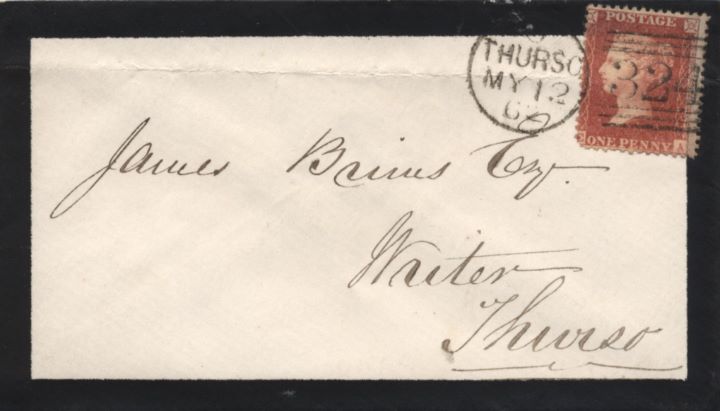 POSTAGE
THURSO
MY 12
62
324
ONE PENNY
A
James Brims Esq.
Writer
Thurso